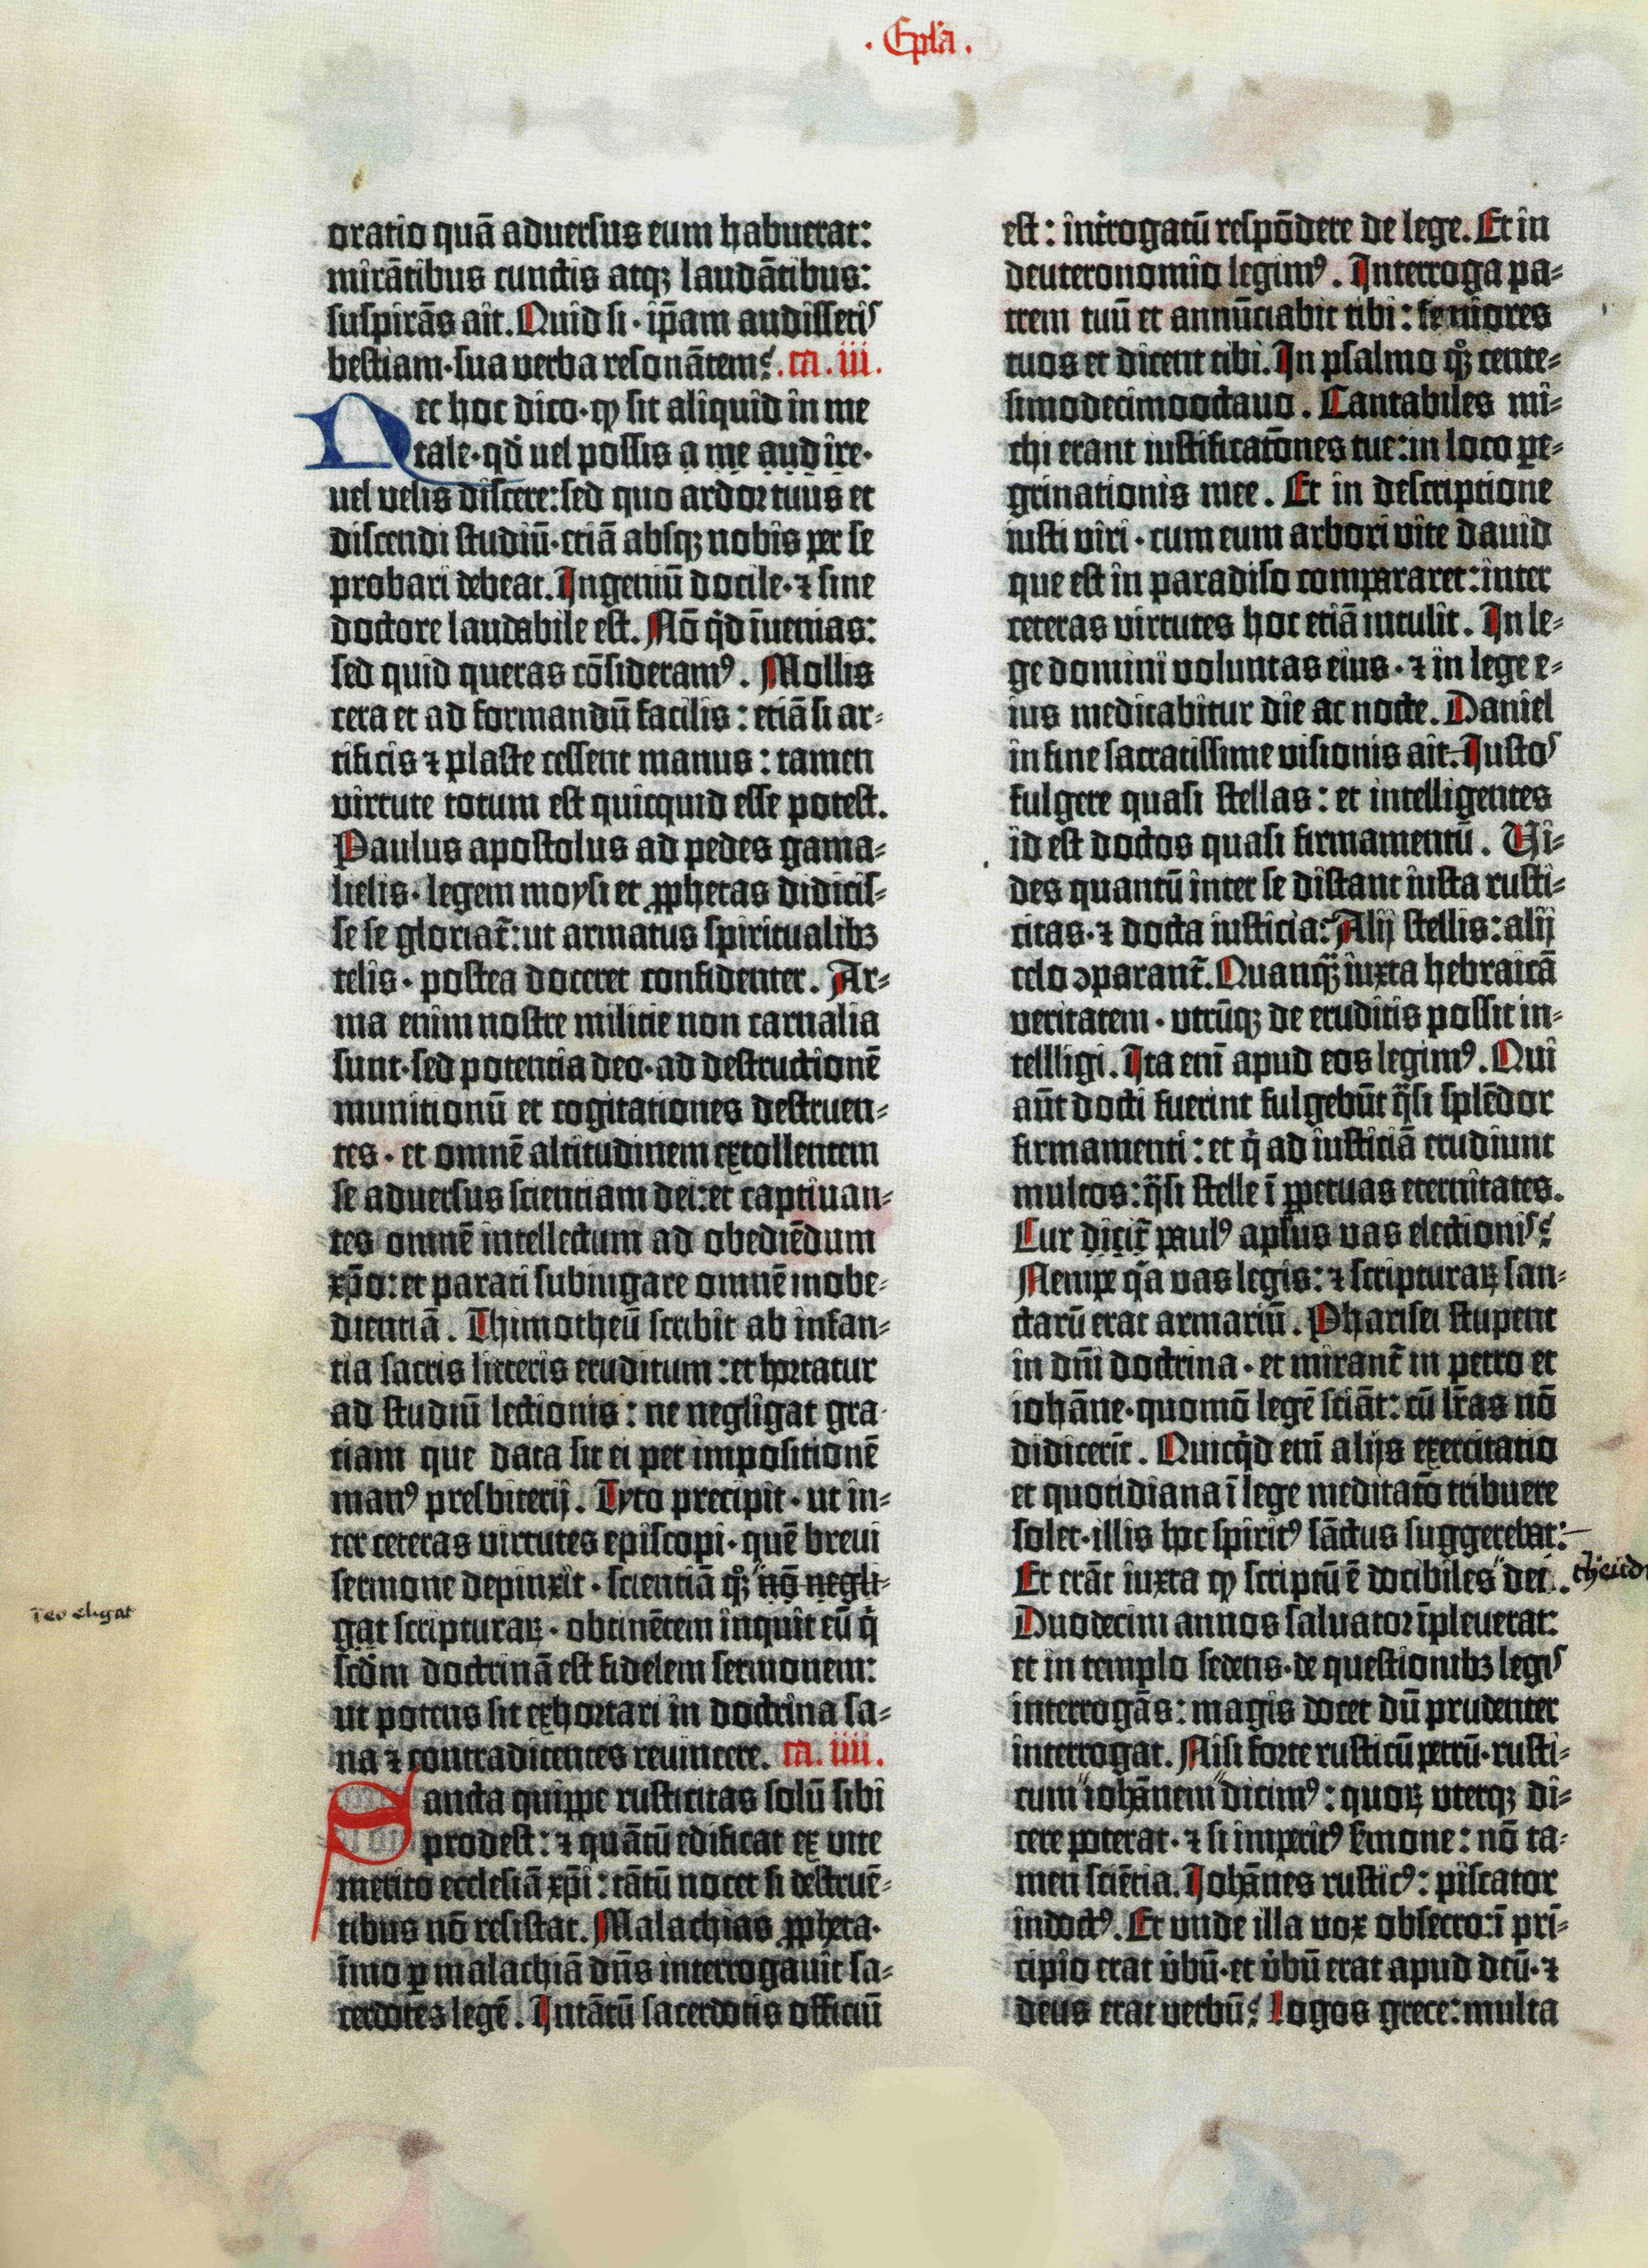 ·Epl'a·
oratio quā aduersus eum habuerat:
mirātibus cunctis atqꝫ laudātibus:
suspirās ait. Quid si · ip̄am audissetis
bestiam · sua verba resonātem? .ca. iii.
Nec hoc dico · ꝙ sit aliquid in me
tale · qd̄ uel possis a me audire ·
uel velis discere: sed quo ardor tuus et
discendi studiū · etiā absqꝫ nobis per se
probari debeat. Ingeniū docile · ⁊ sine
doctore laudabile est. Nō qd̄ īuenias:
sed quid queras cōsideramꝰ. Mollis
cera et ad formandū facilis: etiā si ar-
tificis ⁊ plaste cessent manus: tamen
virtute totum est quicquid esse potest.
Paulus apostolus ad pedes gama-
lielis · legem moysi et ꝓphetas didicis-
se se gloriat̄: ut armatus spiritualibꝫ
telis · postea doceret confidenter. Ar-
ma enim nostre militie non carnalia
sunt · sed potentia deo · ad destructionē
munitionū et cogitationes destruen-
tes · et omnē altitudinem extollentem
se aduersus scientiam dei: et captiuan-
tes omnē intellectum ad obediēdum
xp̄o: et parati subiugare omnē inobe-
dientiā. Thimotheū scribit ab infan-
tia sacris litteris eruditum: et hortatur
ad studiū lectionis: ne negligat gra-
tiam que data sit ei per impositionē
manꝰ presbiterij. Tyto precipit · ut in-
ter ceteras virtutes episcopi · quē breui
sermone depinxit · scientiā qꝫ nō negli-
gat scripturaꝝ · obtinētem inquit eū q̄
scd̄m doctrinā est fidelem sermonem:
ut potens sit exhortari in doctrina sa-
na ⁊ contradicentes reuincere. ca. iiii.
Sancta quippe rusticitas solū sibi
prodest: ⁊ quātū edificat ex vite
merito ecclesiā xp̄i: tātū nocet si destruē-
tibus nō resistat. Malachias ꝓpheta ·
īmo ꝑ malachiā dn̄s interrogauit sa-
cerdotes legē. Intātū sacerdotis officiū
est: int̄rogatū respōdere de lege. Et in
deuteronomio legimꝰ. Interroga pa-
trem tuū et annūciabit tibi: seniores
tuos et dicent tibi. In psalmo qꝫ cente-
simodecimooctauo. Cantabiles mi-
chi erant iustificatōnes tue: in loco ꝑe-
grinationis mee. Et in descriptione
iusti viri · cum eum arbori vite dauid
que est in paradiso compararet: inter
ceteras virtutes hoc etiā intulit. In le-
ge domini voluntas eius · ⁊ in lege e-
ius meditabitur die ac nocte. Daniel
in fine sacratissime visionis ait. Iustos
fulgere quasi stellas: et intelligentes
id est doctos quasi firmamentū. Vi-
des quantū inter se distant iusta rusti-
citas · ⁊ docta iusticia? Alij stellis: alij
celo ↄparant̄. Quanqꝫ iuxta hebraicā
veritatem · utrūqꝫ de eruditis possit in-
tellligi. Ita enī apud eos legimꝰ. Qui
aūt docti fuerint fulgebūt q̄si splēdor
firmamenti: et q̄ ad iusticiā erudiunt
multos: q̄si stelle ī ꝑpetuas eternitates.
Cur dicit̄ paulꝰ aplus vas electionis?
Nempe q̄a vas legis: ⁊ scripturaꝝ san-
ctarū erat armariū. Pharisei stupent
in dn̄i doctrina · et mirant̄ in petro et
iohāne · quomō legē sciāt: cū lr̄as nō
didicerīt. Quicqd̄ enī alijs exercitatio
et quotidiana ī lege meditatō tribuere
solet · illis hoc spiritꝰ sāctus suggerebat:
Et erāt iuxta ꝙ scriptū ē docibiles dei.
Duodecim annos saluator īpleuerat:
et in templo sedens · de questionibꝫ legis
interrogās: magis docet dū prudenter
interrogat. Nisi forte rusticū petrū · rusti-
cum iohānem dicimꝰ: quoꝝ uterqꝫ di-
cere poterat · ⁊ si imperitꝰ s̄mone: nō ta-
men sciētia. Iohānes rusticꝰ: piscator
indoctꝰ. Et unde illa vox obsecro: ī pri-
cipio erat v̄bū · et v̄bū erat apud deū · ⁊
deus erat verbū? logos grece: multa